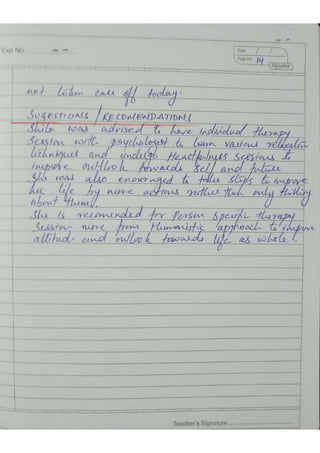 Exp No.
Date / /
Page No. 14
not taken care off today.
SUGESTIONS / RECOMENDATIONS
Shila was advised to have individual therapy
Session with psychologist to learn various relaxation
techniques and undergo Heartfulness sessions to
improve outlook towards self and future
She was also encouraged to take steps to improve
her life by more actions rather than only thinking
about them.
She is recomended for Person Specific therapy
Session more from Humanistic approach to improve
attitude and outlook towards life as whole.
Teacher's Signature